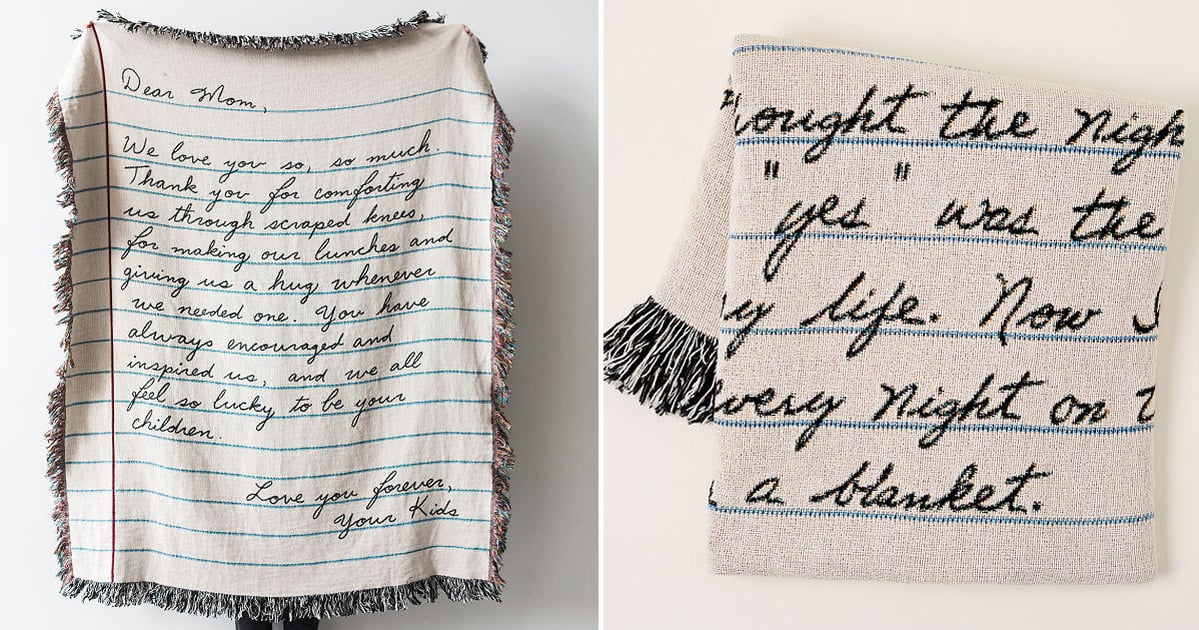 Dear Mom,
We love you so, so much.
Thank you for comforting
us through scraped knees,
for making our lunches and
giving us a hug whenever
we needed one. You have
always encouraged and
inspired us, and we all
feel so lucky to be your
children.
Love you forever,
Your Kids
ought the nigh
" "
yes was the
y life. Now
very night on
a blanket.